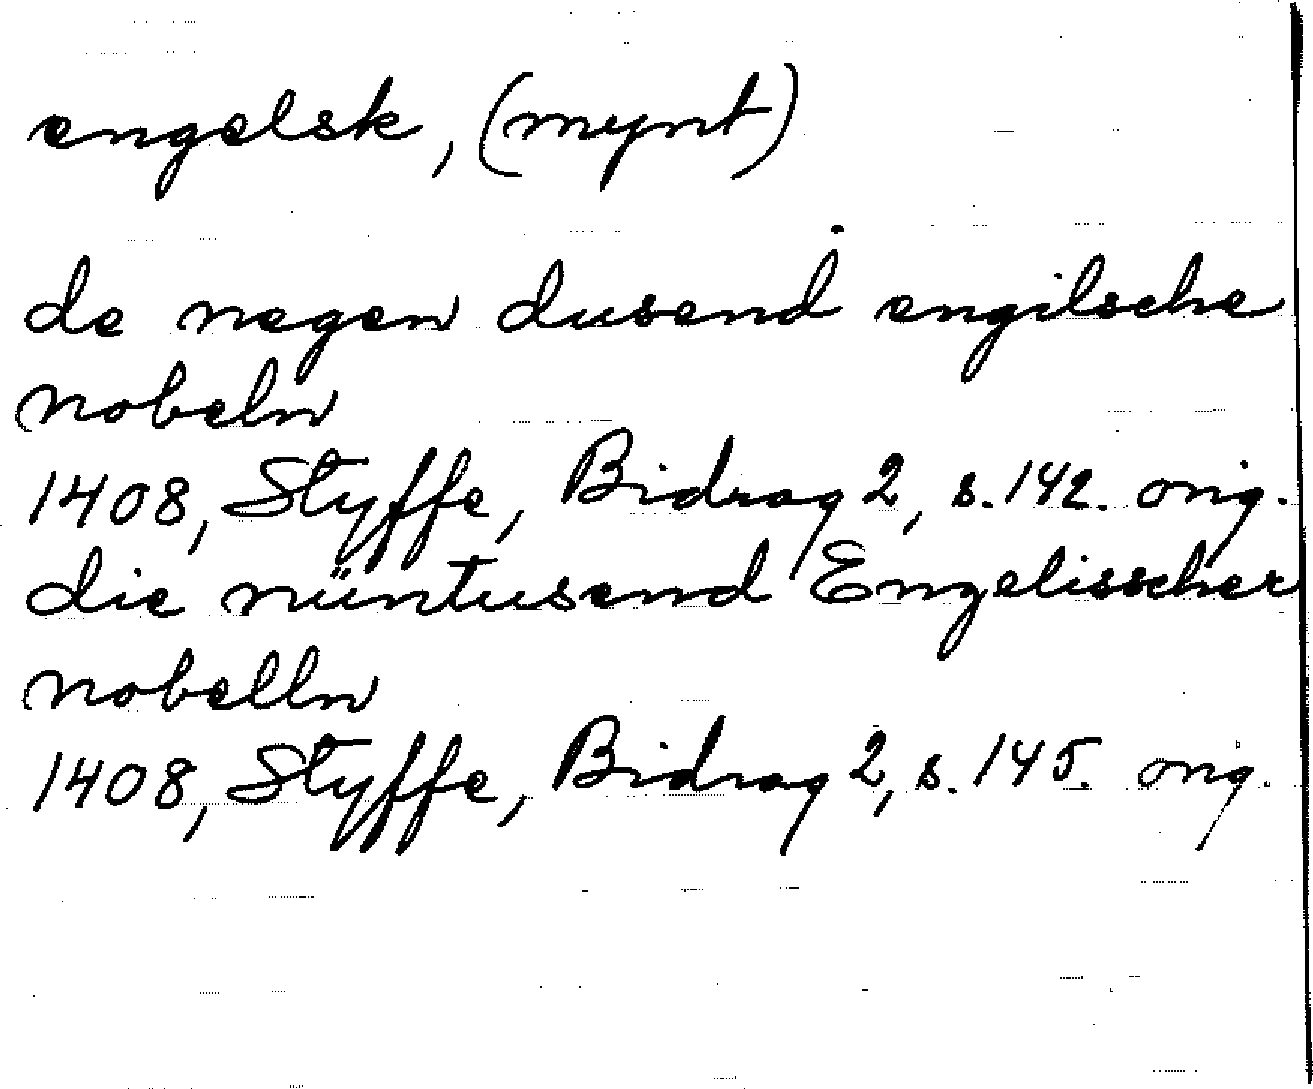 engelsk, (mynt)
de negen dusend engilsche
nobeln
1408, Styffe, Bidrag 2, s. 142. orig.
die nüntusend Engelisscher
nobelln
1408, Styffe, Bidrag 2, s. 145. orig.